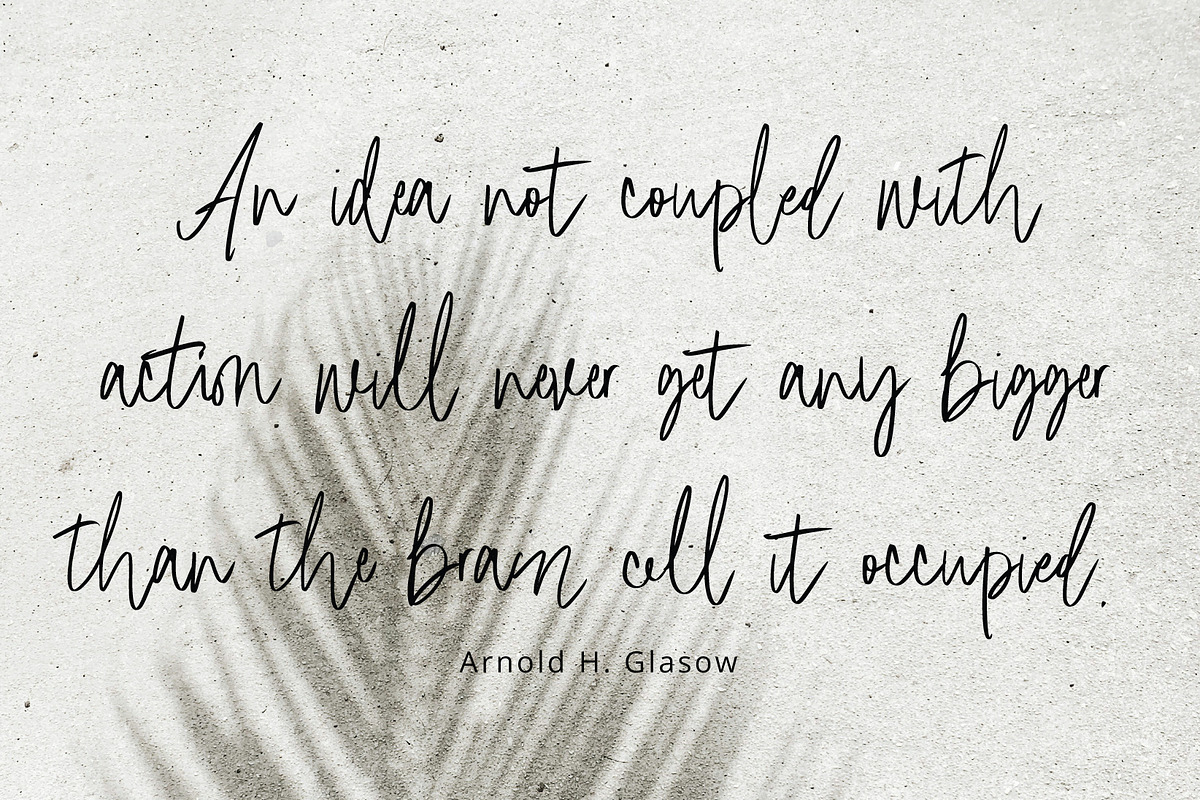 An idea not coupled with
action will never get any bigger
than the brain cell it occupied.
Arnold H. Glasow